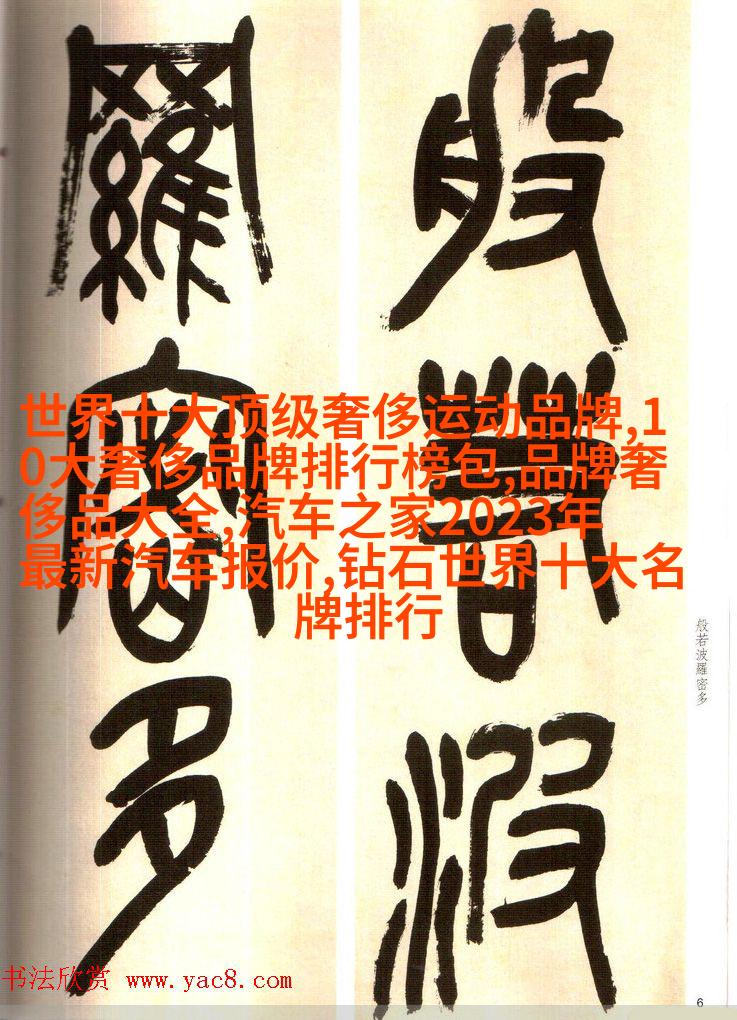 般若波
羅密多
世界十大顶级奢侈运动品牌,1
0大奢侈品牌排行榜包,品牌奢
侈品大全,汽车之家2023年
最新汽车报价,钻石世界十大名
牌排行
般若波羅密多
书法欣赏 www.yac8.com
6